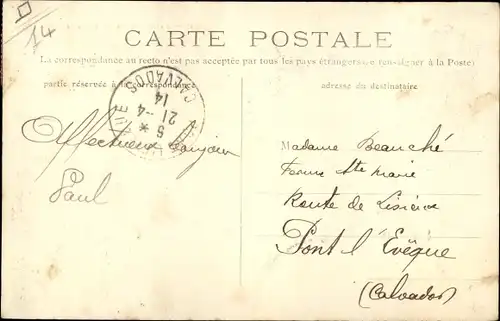 14
CARTE POSTALE
La correspondance au recto n'est pas acceptée par tous les pays étrangers (se renseigner à la Poste)
partie réservée à la correspondance
adresse du destinataire
CALVADOS
14
21-4
5 *
Affectueux bonjour
Paul
Madame Beauché
Ferme Ste Marie
Route de Lisieux
Pont l'Evêque
(Calvados)